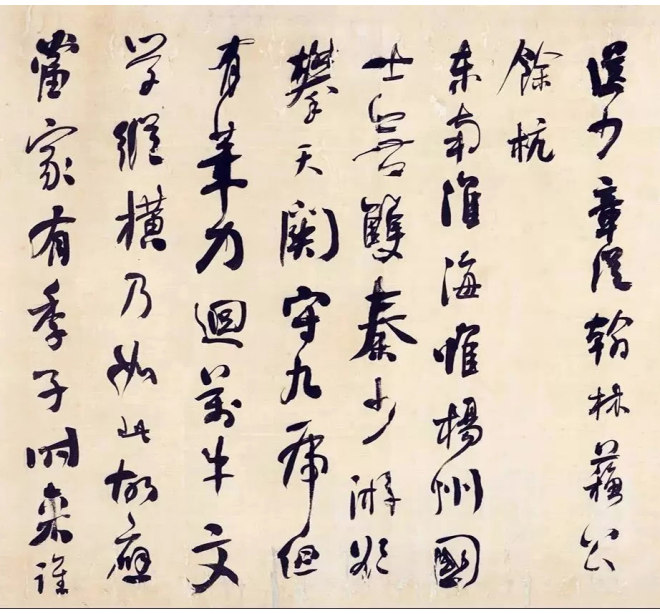 送少章從翰林蘇公
餘杭
東南淮海惟楊州國
士無雙秦少游欲
攀天關守九虎但
有筆力迴萬牛文
學縱橫乃如此故應
當家有季子時來誰